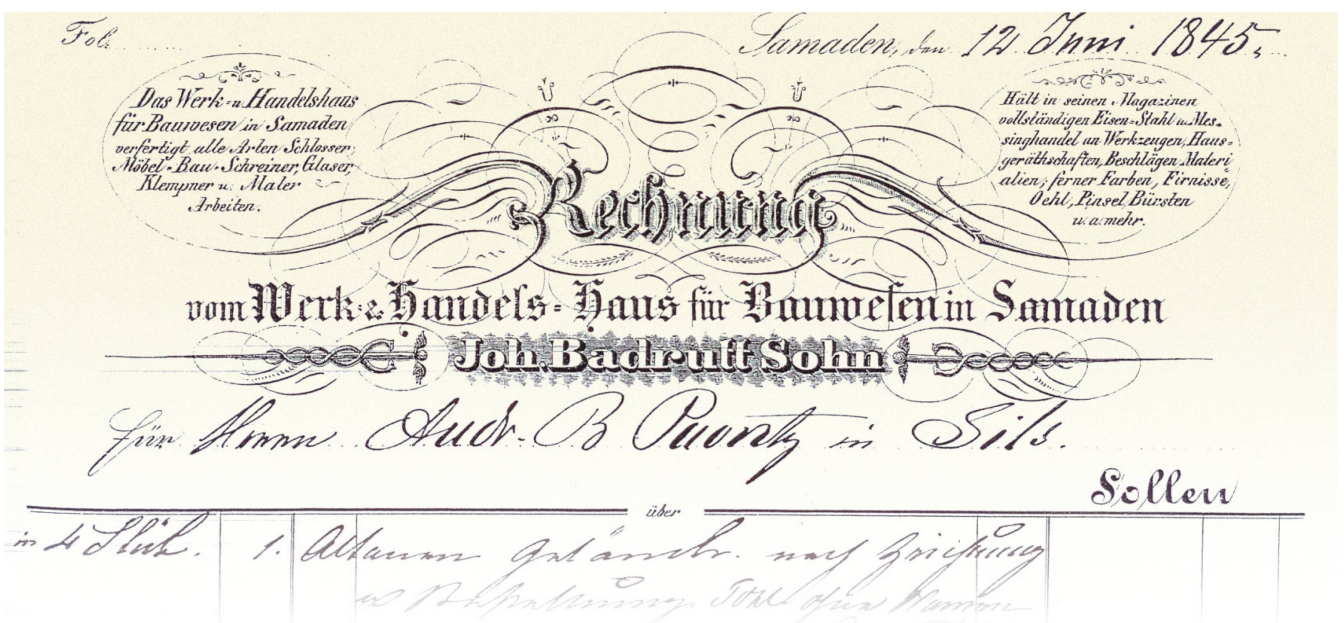 Fol.
Samaden, den 12 Juni 1845.
Das Werk= u. Handelshaus
für Bauwesen in Samaden
verfertigt alle Arten Schlosser,
Möbel=Bau=Schreiner, Glaser,
Klempner u. Maler
Arbeiten.
Hält in seinen Magazinen
vollständigen Eisen=Stahl u. Mes=
singhandel an Werkzeugen, Haus=
geräthschaften, Beschlägen Materi
alien; ferner Farben, Firnisse,
Oehl, Pinsel Bürsten
u. a. mehr.
Rechnung
vom Werk= & Handels=Haus für Bauwesen in Samaden
Joh. Badrutt Sohn
für Herrn Andr. B in Sils.
Sollen
über
in 4 Stük. 1. Altanen Geländr. nach Zeichnung